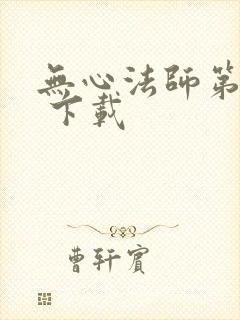 無心法師第
下載
曹轩賓